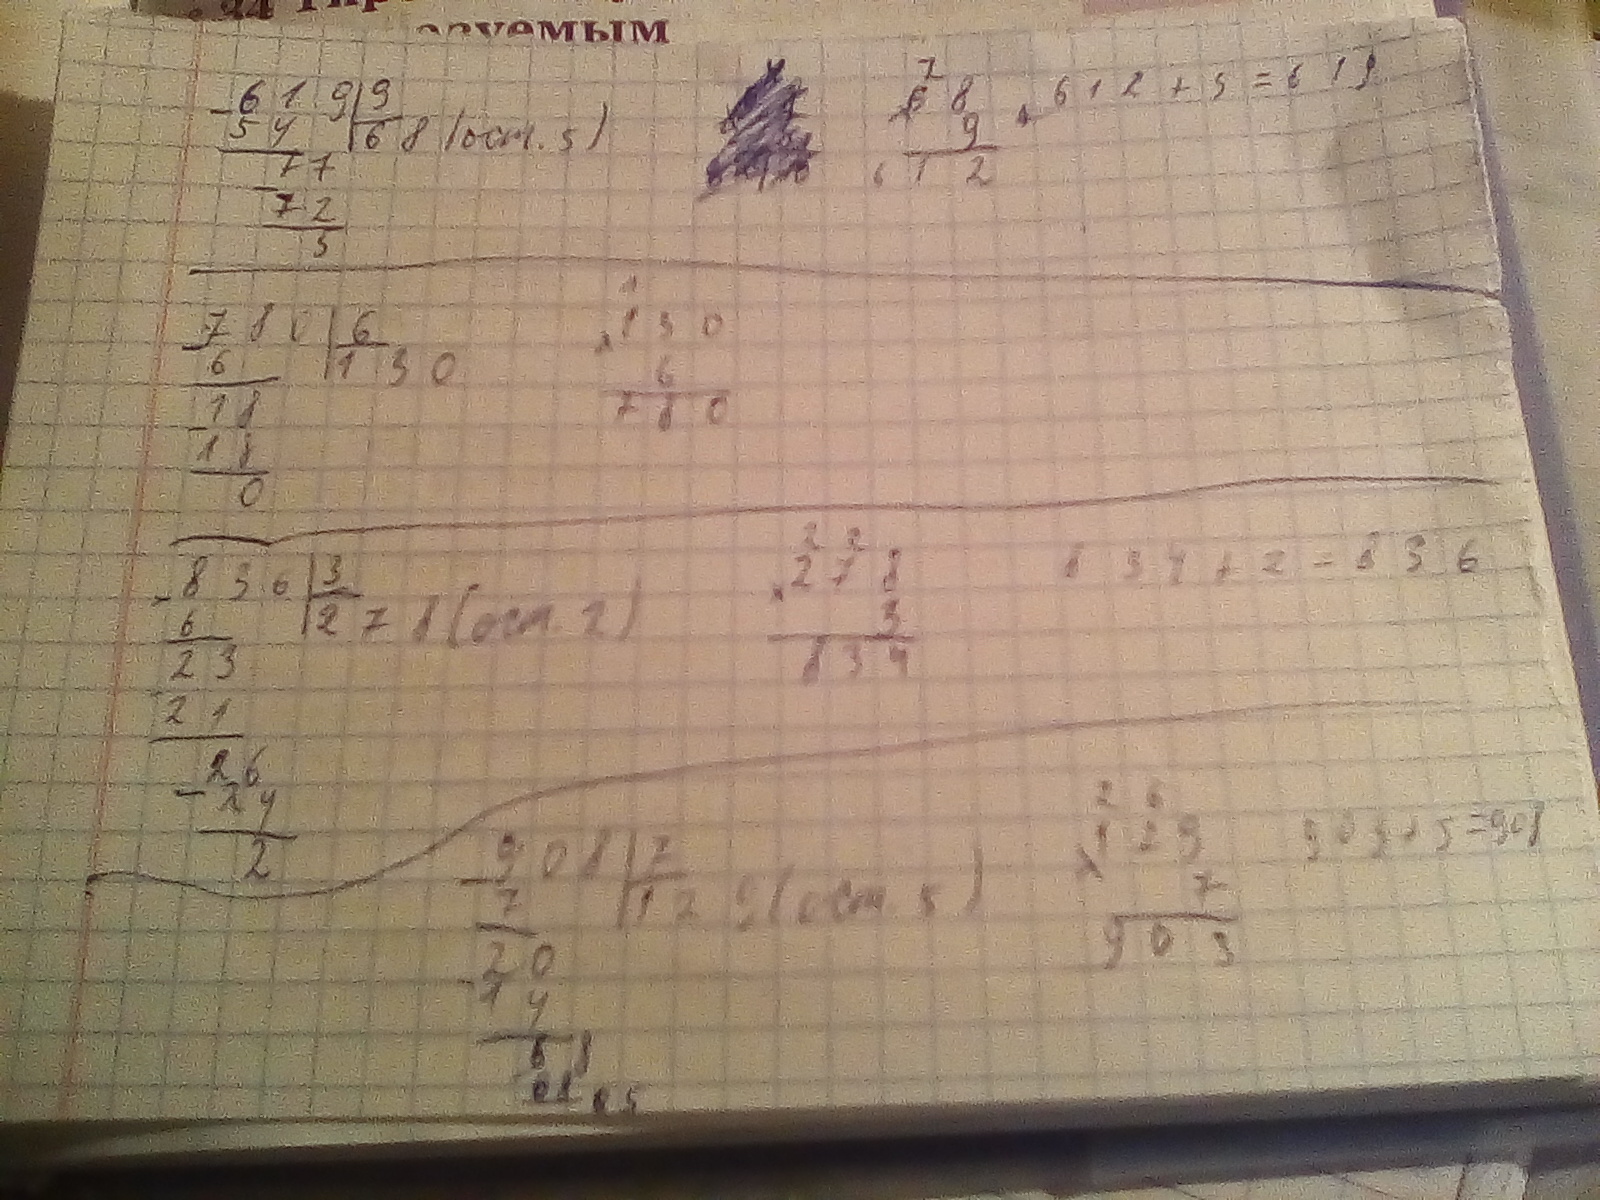 зуемым
- 6 1 9 | 9
5 4 | 6 8 (ост. 5)
- 7 7
7 2
5
7
× 6 8
9
6 1 2
6 1 2 + 5 = 6 1 9
- 7 8 0 | 6
6 | 1 3 0
- 1 8
1 8
0
1
× 1 3 0
6
7 8 0
- 8 3 6 | 3
6 | 2 7 8 (ост. 2)
2 3
2 1
- 2 6
2 4
2
2 2
× 2 7 8
3
8 3 4
8 3 4 + 2 = 8 3 6
- 9 0 8 | 7
7 | 1 2 9 (ост. 5)
- 2 0
1 4
6 8
2 6
× 1 2 9
7
9 0 3
9 0 3 + 5 = 908